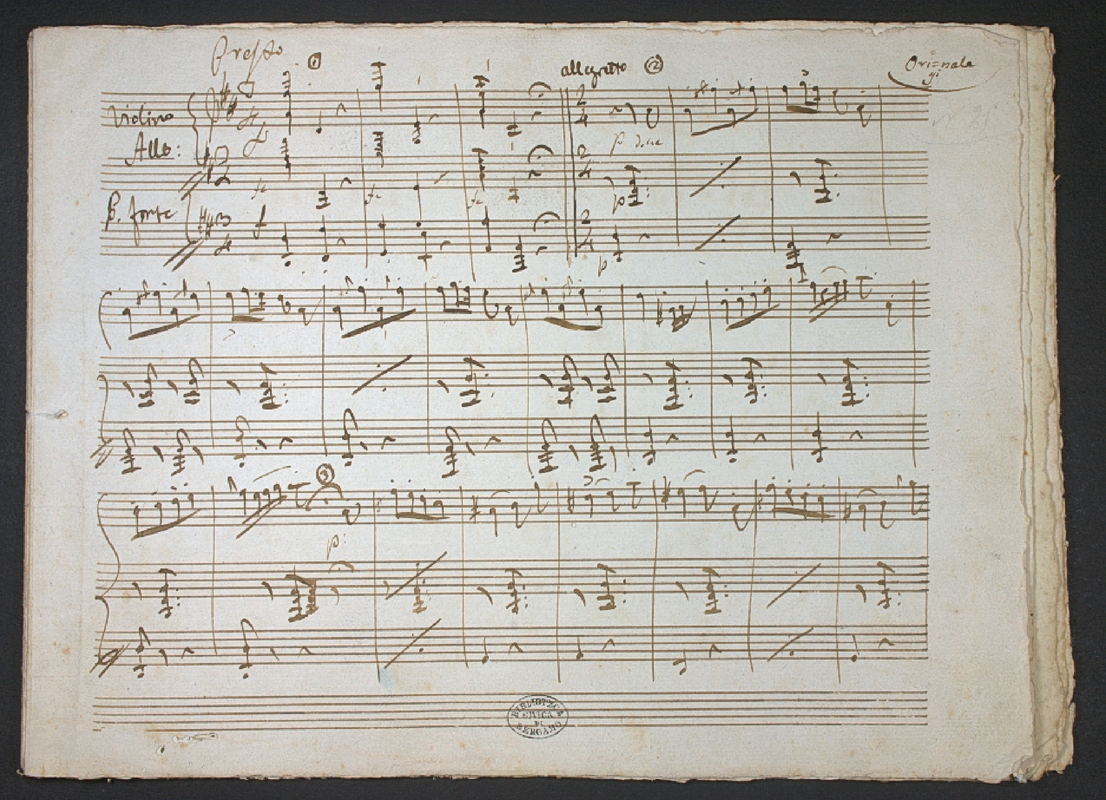 Presto
1
allegretto 2
Ori=nale
gi
Violino
Allo:
p dolce
P. forte
3
p:
BIBLIOTECA
CIVICA
DI
BERGAMO